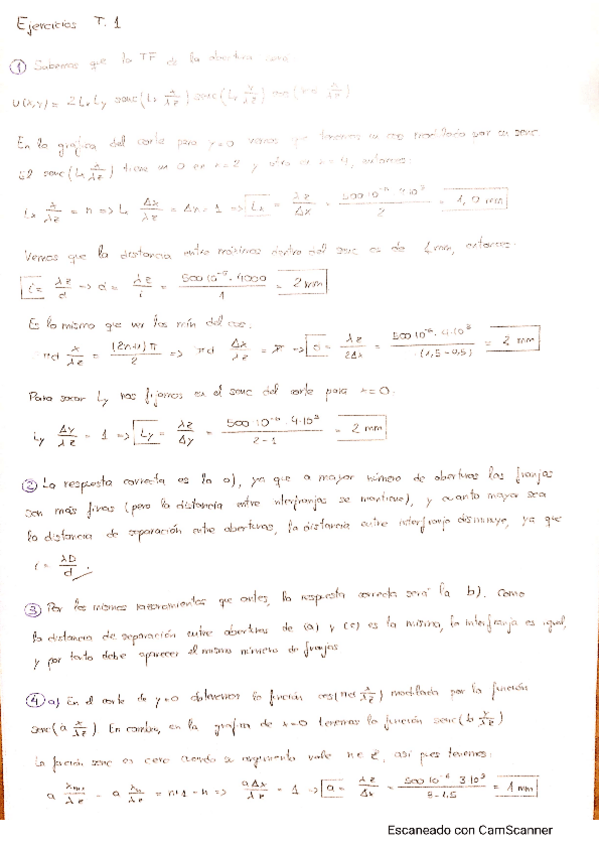 Ejercicios T. 1
① Sabemos que la TF de la abertura
U(x,y) = 2 Lx Ly senc(Lx x/λz) senc(Ly y/λz) cos(πd x/λz)
En la grafica del corte para y=0 vemos que tenemos un cos modulado por un senc
El senc(Lx x/λz) tiene un 0 en x=2 y otro en x=4, entonces:
Lx x/λz = n => Lx Δx/λz = Δn = 1 => Lx = λz/Δx = 500·10⁻⁶·4·10³/2 = 1,0 mm
Vemos que la distancia entre máximos dentro del senc es de 1mm, entonces:
i = λz/d -> d = λz/i = 500·10⁻⁶·4000/1 = 2 mm
Es lo mismo que ver los min del cos.
πd x/λz = (2n+1)π/2 => πd Δx/λz = π -> d = λz/Δx = 500·10⁻⁶·4·10³/(1,5-0,5) = 2 mm
Para sacar Ly nos fijamos en el senc del corte para x=0.
Ly Δy/λz = 1 => Ly = λz/Δy = 500·10⁻⁶·4·10³/2-1 = 2 mm
② La respuesta correcta es la a), ya que a mayor número de aberturas las franjas
son más finas (pero la distancia entre interfranjas se mantiene), y cuanto mayor sea
la distancia de separación entre aberturas, la distancia entre interfranja disminuye, ya que
i = λD/d.
③ Por los mismos razonamientos que antes, la respuesta correcta será la b). Como
la distancia de separación entre aberturas de (a) y (c) es la misma, la interfranja es igual,
y por tanto debe aparecer el mismo número de franjas
④ a) En el corte de y=0 obtenemos la función cos(πd x/λz) modulada por la función
senc(a x/λz) En cambio, en la grafica de x=0 tenemos la función senc(b y/λz)
La función senc es cero cuando su argumento vale n∈Z, así pues tenemos:
a xₙ₊₁/λz - a xₙ/λz = n+1-n => aΔx/λz = 1 -> a = λz/Δx = 500·10⁻⁶·3·10³/ = 1 mm
Escaneado con CamScanner